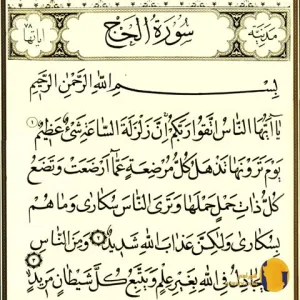 مدنية سورة الحج آياتها ٧٨
بسم الله الرحمن الرحيم
يا أيها الناس اتقوا ربكم إن زلزلة الساعة شيء عظيم ١
يوم ترونها تذهل كل مرضعة عما أرضعت وتضع
كل ذات حمل حملها وترى الناس سكارى وما هم
بسكارى ولكن عذاب الله شديد ٢ ومن الناس
يجادل في الله بغير علم ويتبع كل شيطان مريد